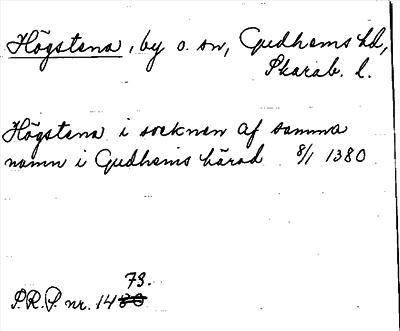 Högstena, by o. sn, Gudhems hd,
Skarab. l.
Högstena i socknen af samma
namn i Gudhems härad 8/1 1380
73.
P.R.P. nr. 1480